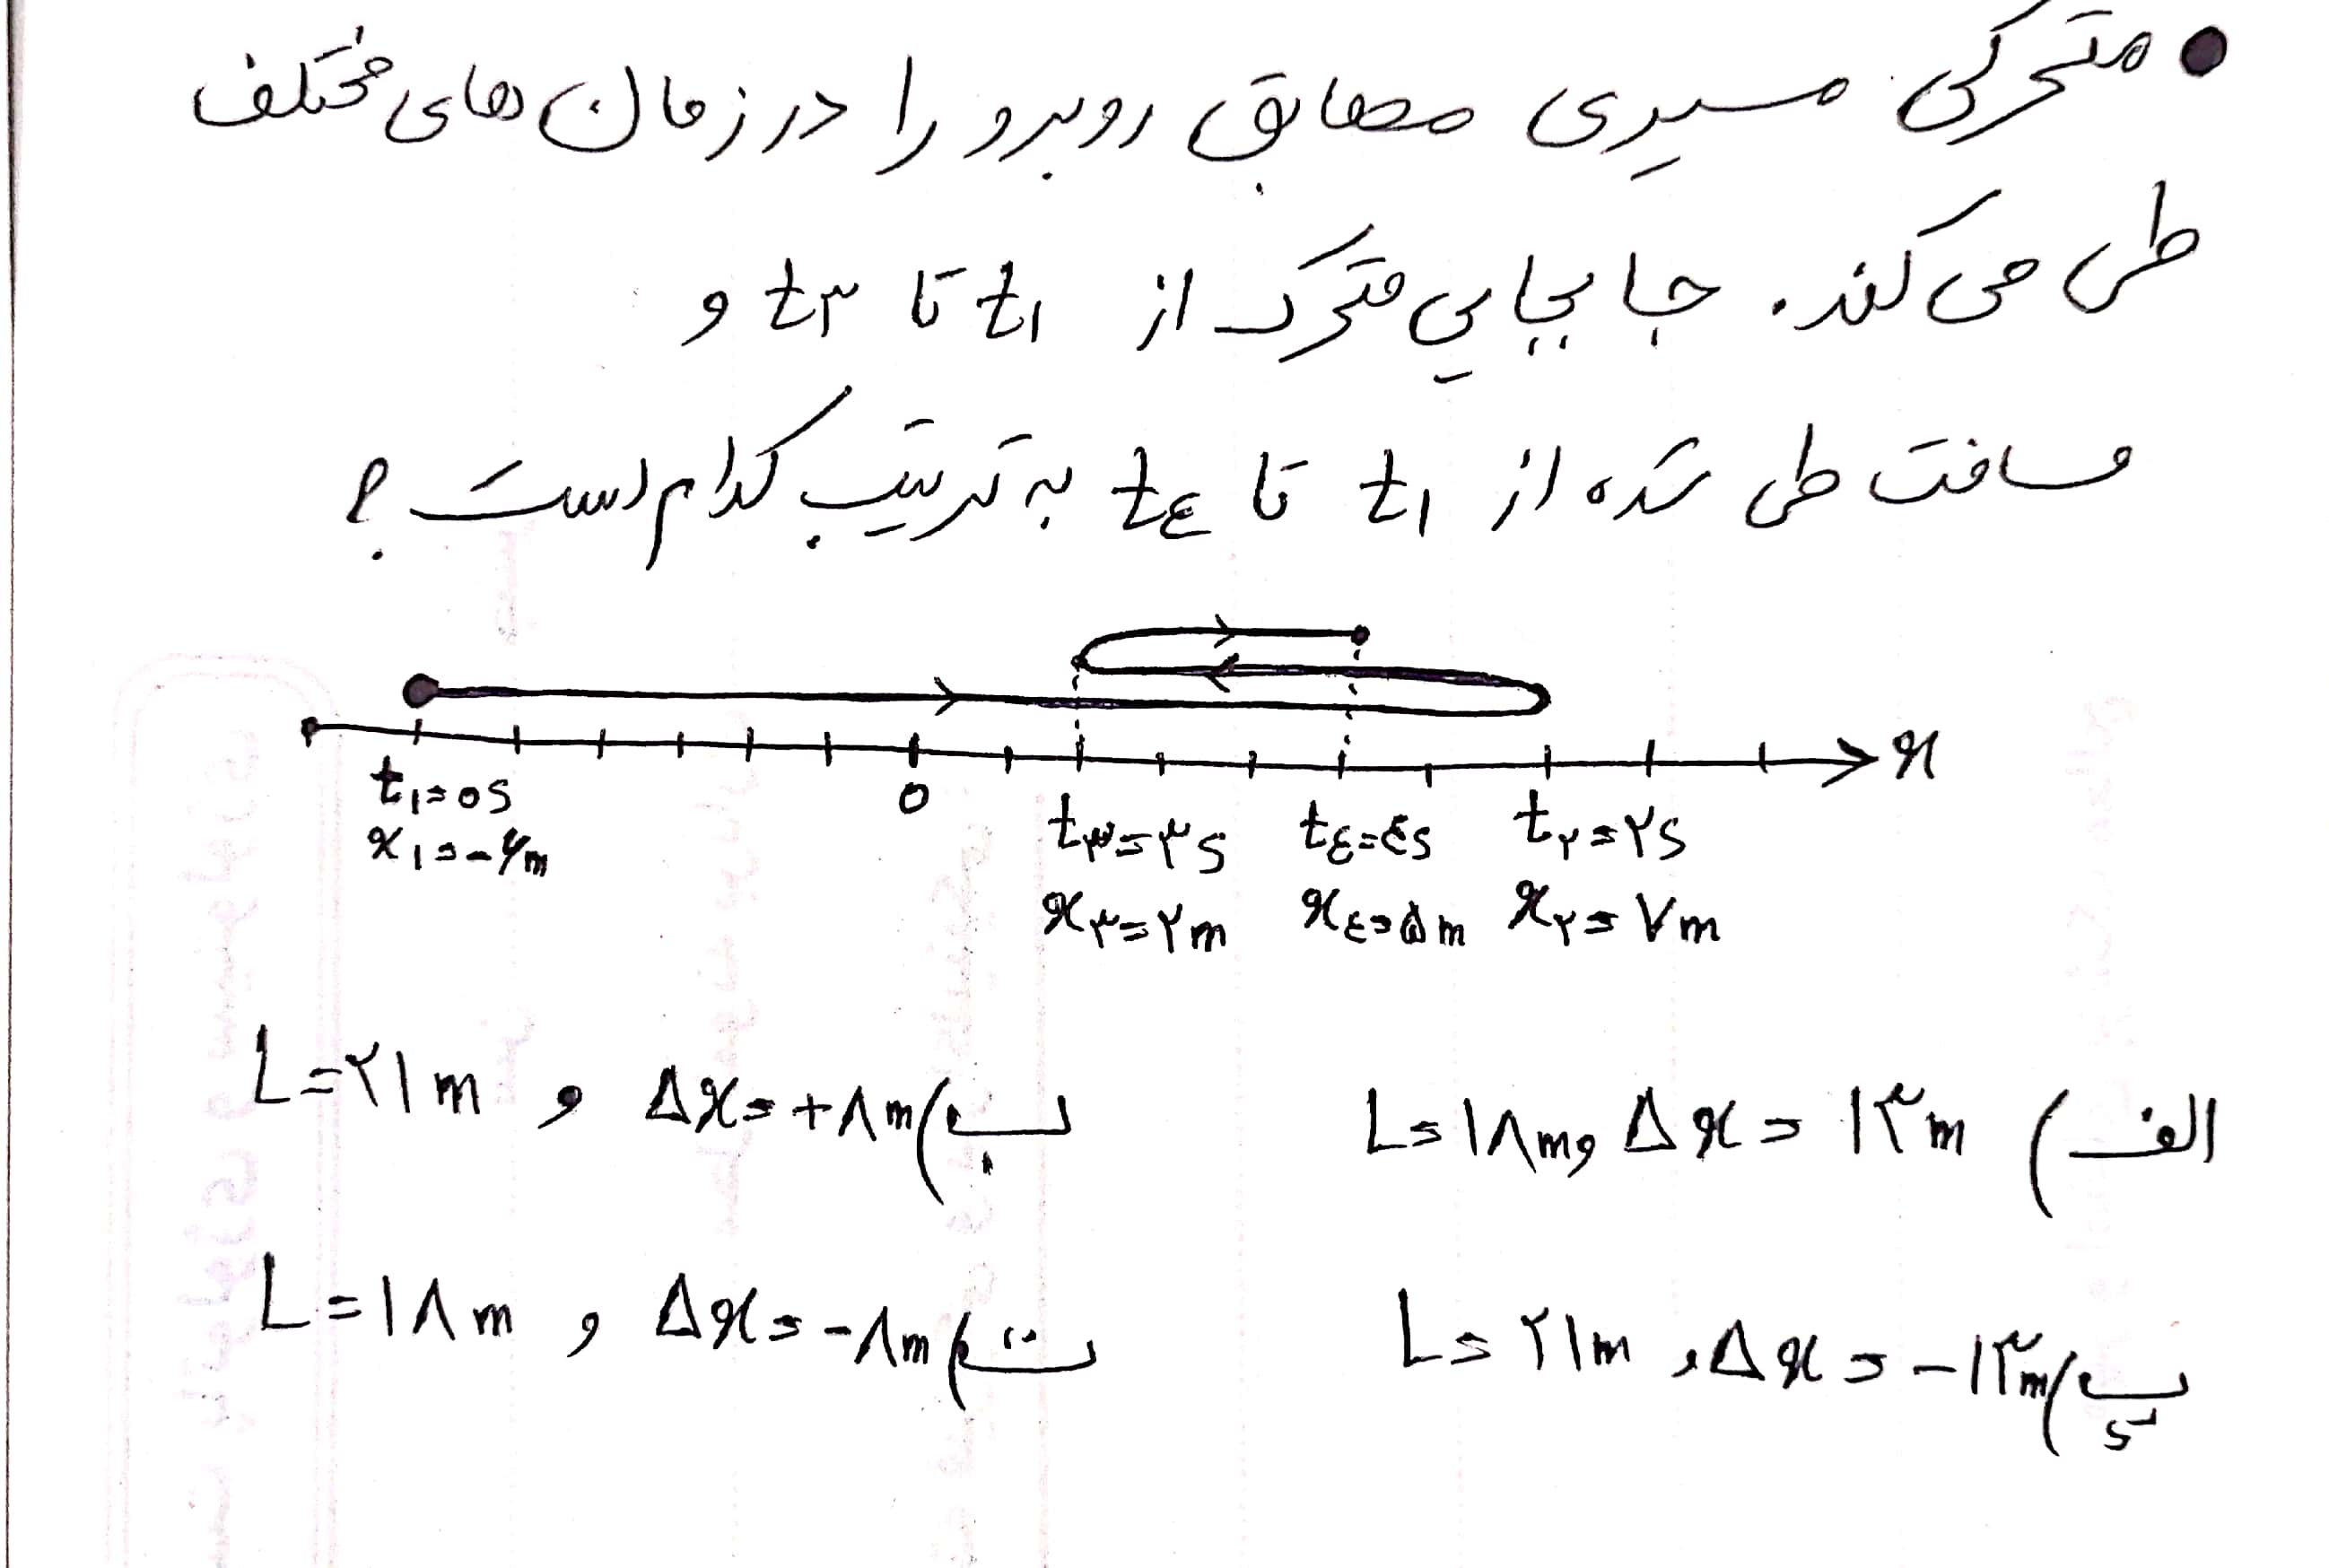 • متحرکی مسیری مطابق روبرو را در زمان های مختلف
طی می کند. جابجایی متحرک از t۱ تا t۳ و
مسافت طی شده از t۱ تا t٤ به ترتیب کدام است؟
x
t۱=۰s
x۱=-۶m
0
t۳=۳s
x۳=۲m
t٤=٤s
x٤=۵m
t۲=۲s
x۲=۷m
الف) Δx=۱۳m و L=۱۸m
ب) Δx=+۸m و L=۲۱m
پ) Δx=-۱۳m و L=۲۱m
ت) Δx=-۸m و L=۱۸m